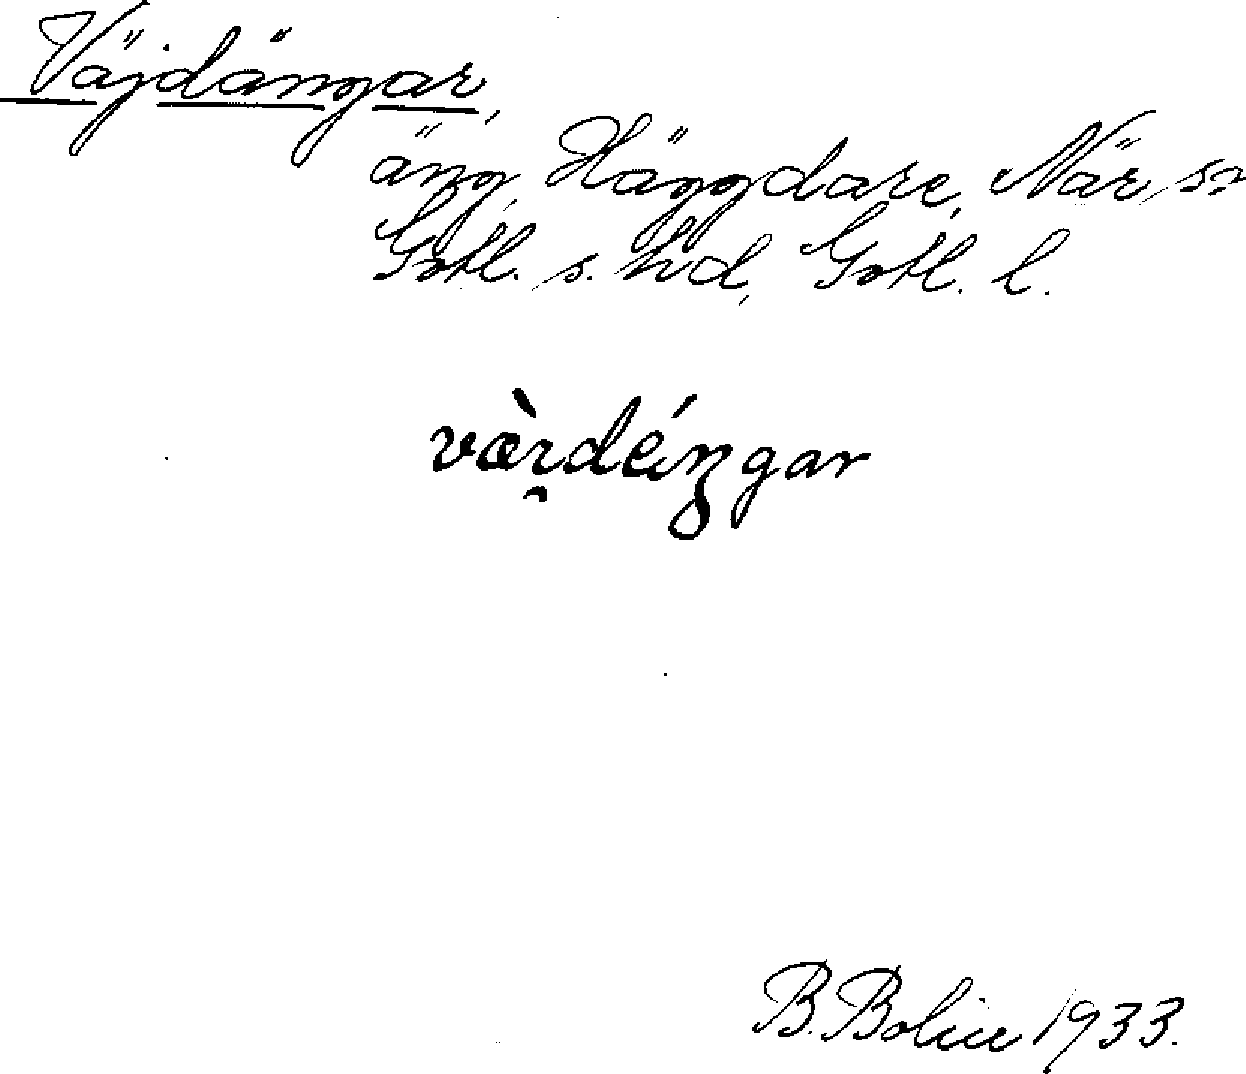 Väjdängar,
äng, Häggdare, När sn
Gotl. s. hd, Gotl. l.
værdéŋgar
B. Bolin 1933.